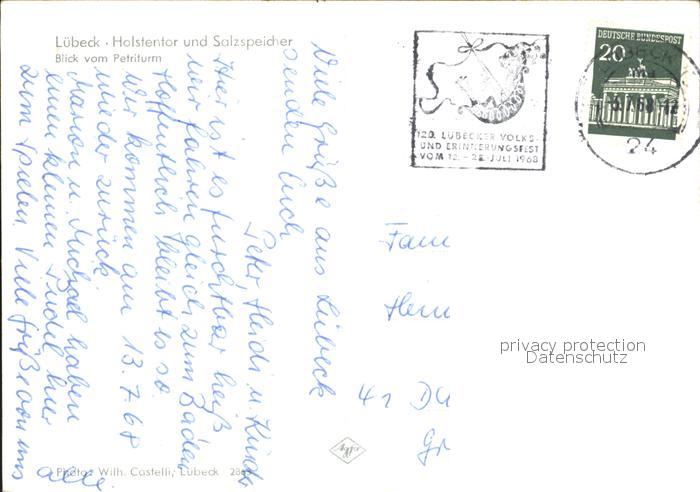 Lübeck · Holstentor und Salzspeicher
Blick vom Petriturm
Viele Grüße aus Lübeck
senden Euch
Peter, Heidi u. Kinder
Hier ist es furchtbar heiß
wir fahren gleich zum Baden
Hoffentlich bleibt es so.
Wir kommen am 13.7.68
wieder zurück.
Marion u. Michael haben
einen kleinen Pudel hier
zum spielen. Viele Grüße von uns
allen
120. LÜBECKER VOLKS-
UND ERINNERUNGSFEST
VOM 12. - 22. JULI 1968
DEUTSCHE BUNDESPOST
20
24
Fam
Herm
privacy protection
Datenschutz
41 DU
Gr
Agfa
Photo: Wilh. Castelli, Lübeck